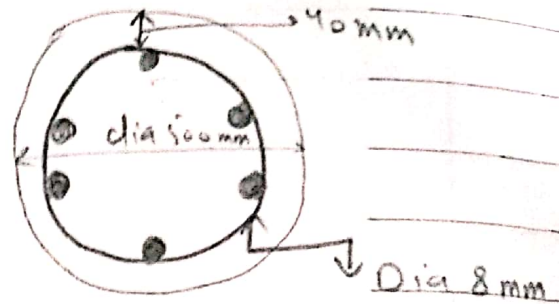 40mm
dia 500mm
Dia 8mm